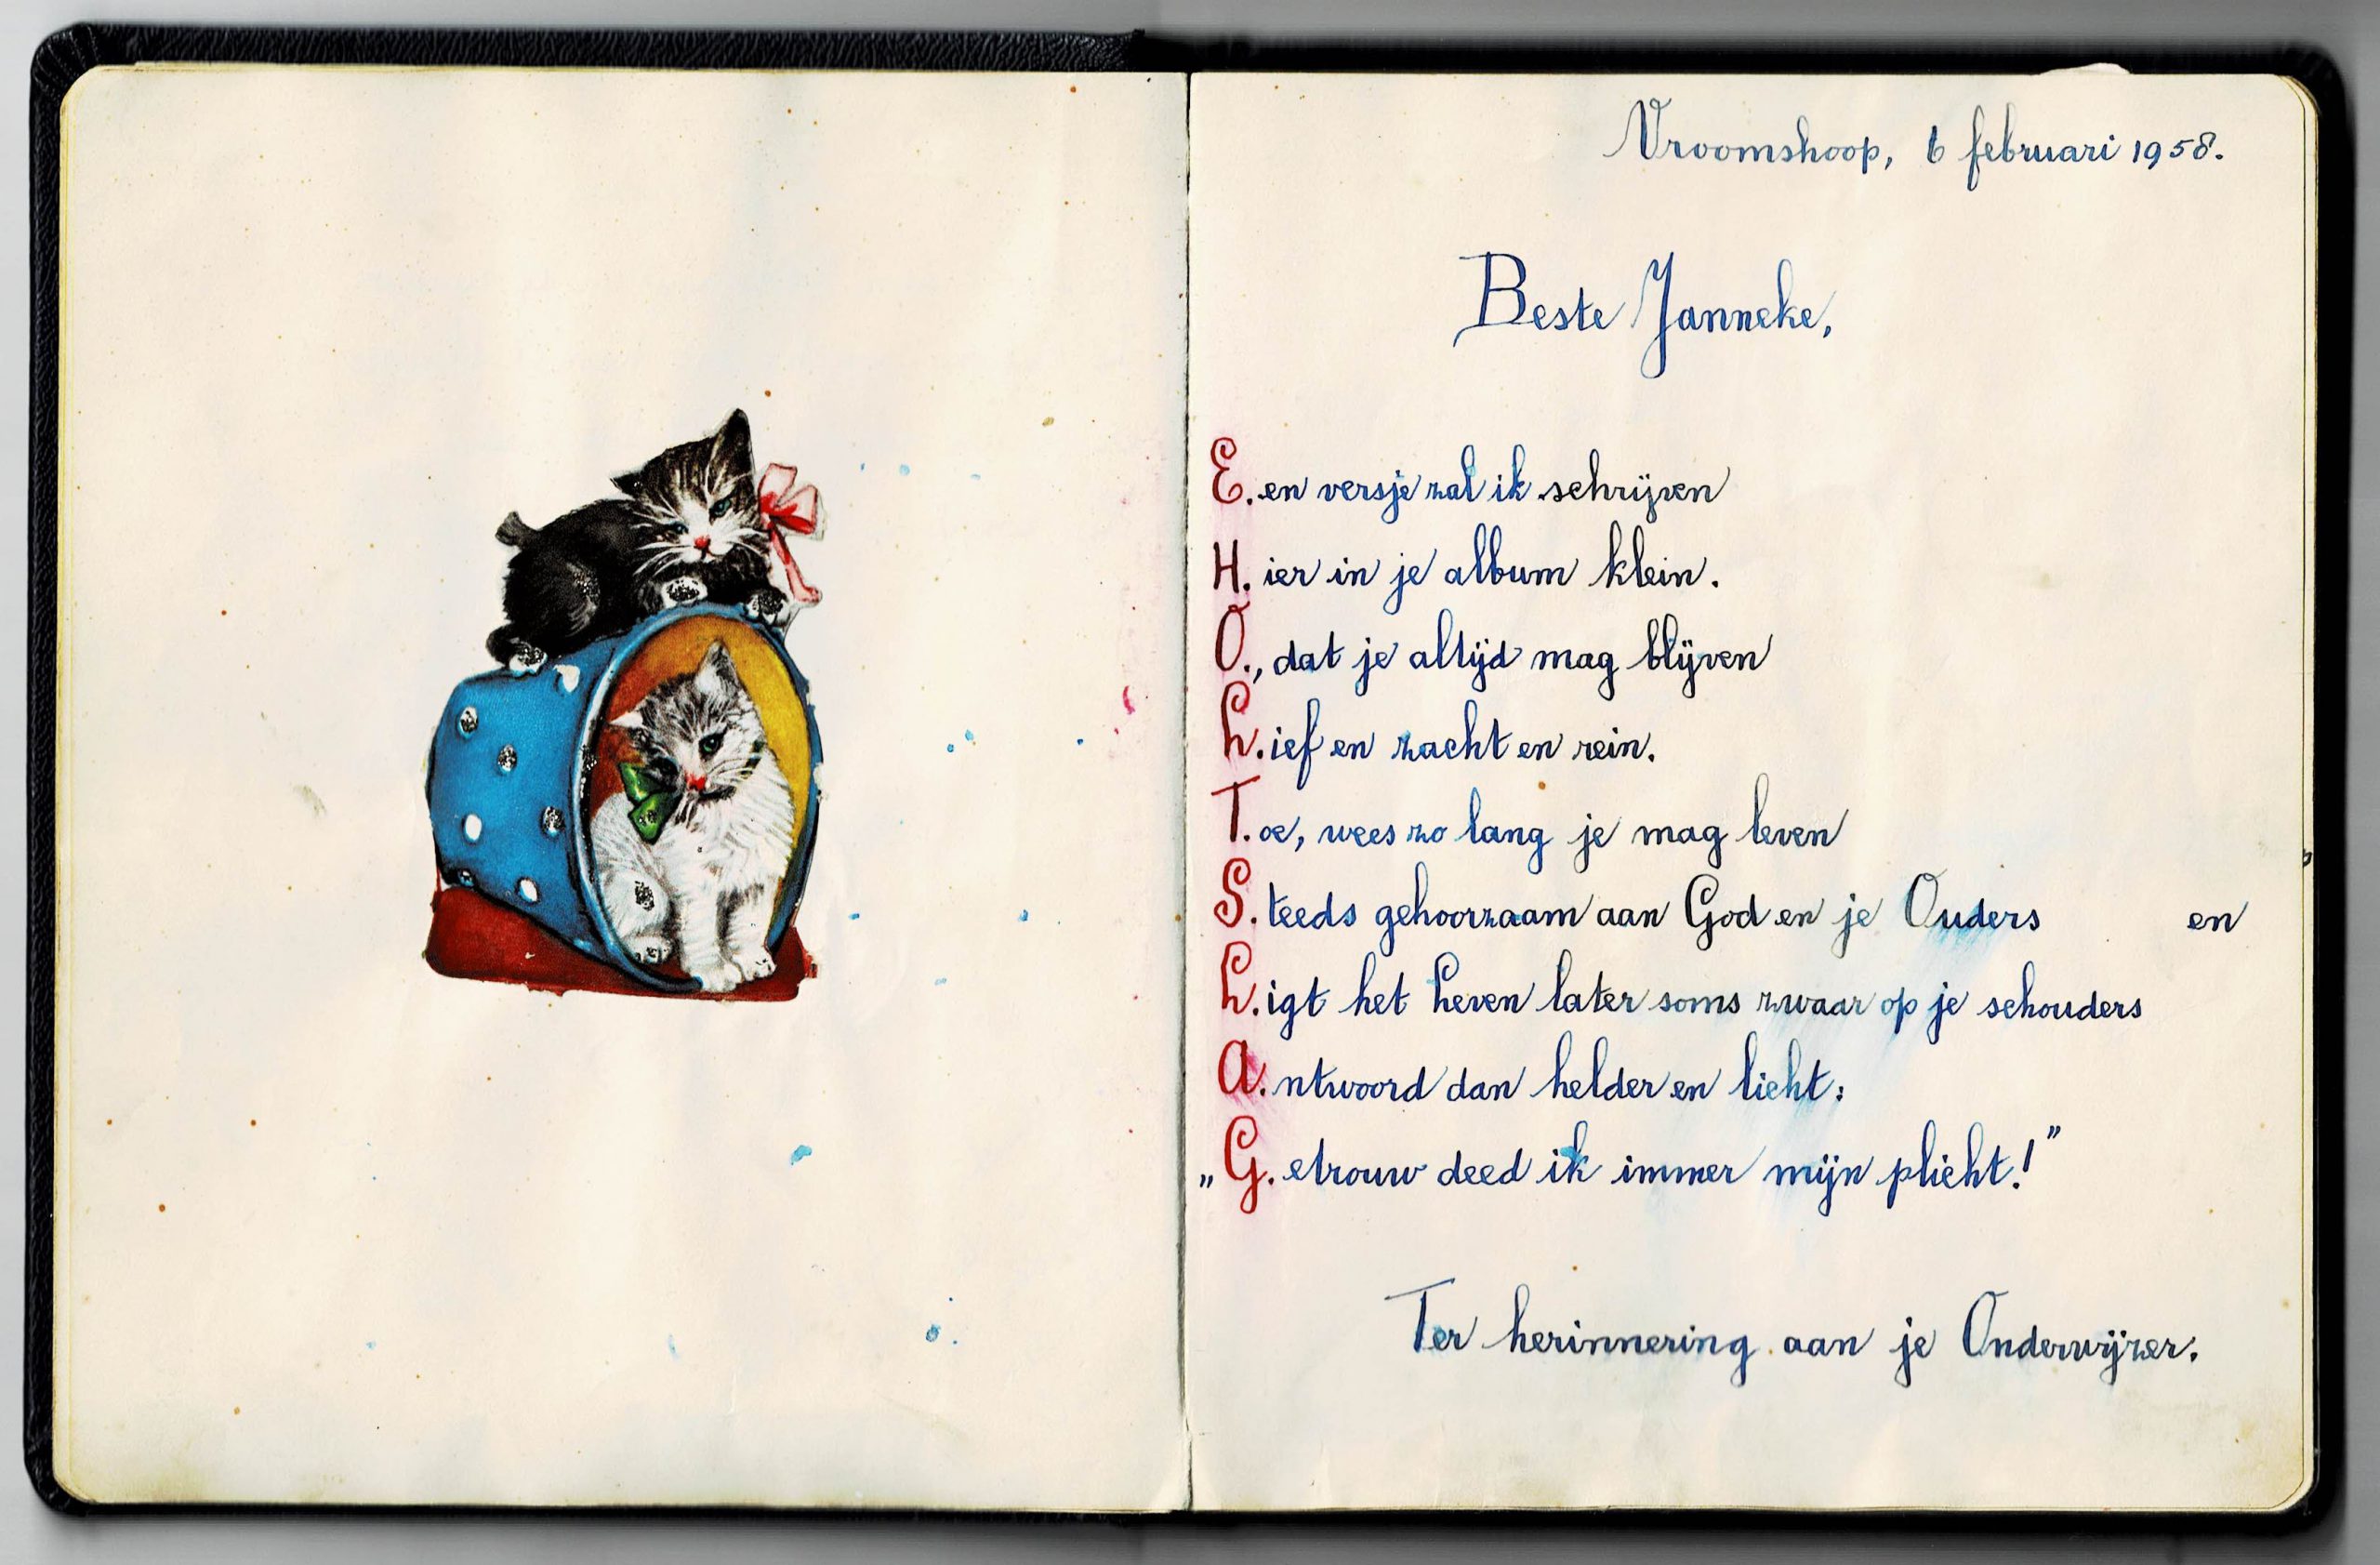 Vroomshoop, 6 februari 1958.
Beste Janneke,
E.en versje zal ik schrijven
H. ier in je album klein.
O., dat je altijd mag blijven
L.ief en zacht en rein.
T.oe, wees zo lang je mag leven
S.teeds gehoorzaam aan God en je Ouders en
L.igt het Leven later soms zwaar op je schouders
A.ntwoord dan helder en licht:
„G.etrouw deed ik immer mijn plicht!”
Ter herinnering aan je Onderwijzer.